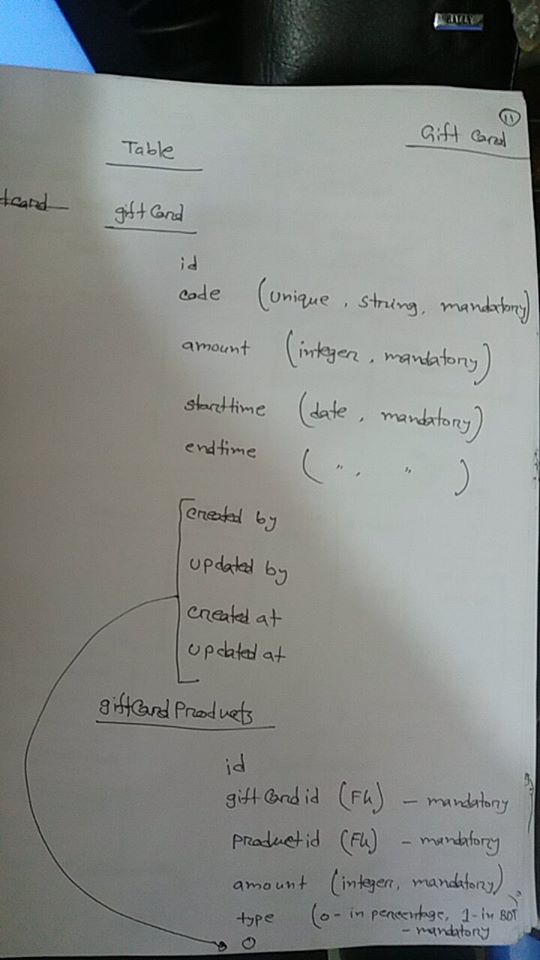 11
Gift Card
Table
giftCard
id
code (unique, string, mandatory)
amount (integer, mandatory)
starttime (date, mandatory)
endtime ( " , " )
created by
updated by
created at
updated at
giftCardProducts
id
giftCardid (Fk) - mandatory
productid (Fk) - mandatory
amount (integer, mandatory)
type (0- in percentage, 1- in BDT)
- mandatory